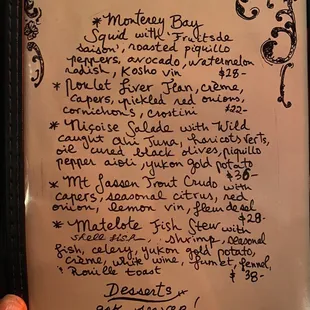 * Monterey Bay
Squid with "Fruits de
saison", roasted piquillo
peppers, avocado, watermelon
radish, Kosho vin $28-
* Poulet Liver Flan, crème,
capers, pickled red onions,
cornichons, crostini $22-
* Niçoise Salade with Wild
caught Ahi Tuna, haricots verts,
oil cured black olives, piquillo
pepper aioli, yukon gold potato
$36-
* Mt Lassen Trout Crudo with
capers, seasonal citrus, red
onion, Lemon vin, fleur de sel
$28-
* Matelote Fish Stew with
shell fish, shrimp, seasonal
fish, celery, yukon gold potato,
crème, white wine, fumet, fennel,
& Rouille toast $38-
Desserts
ask server!